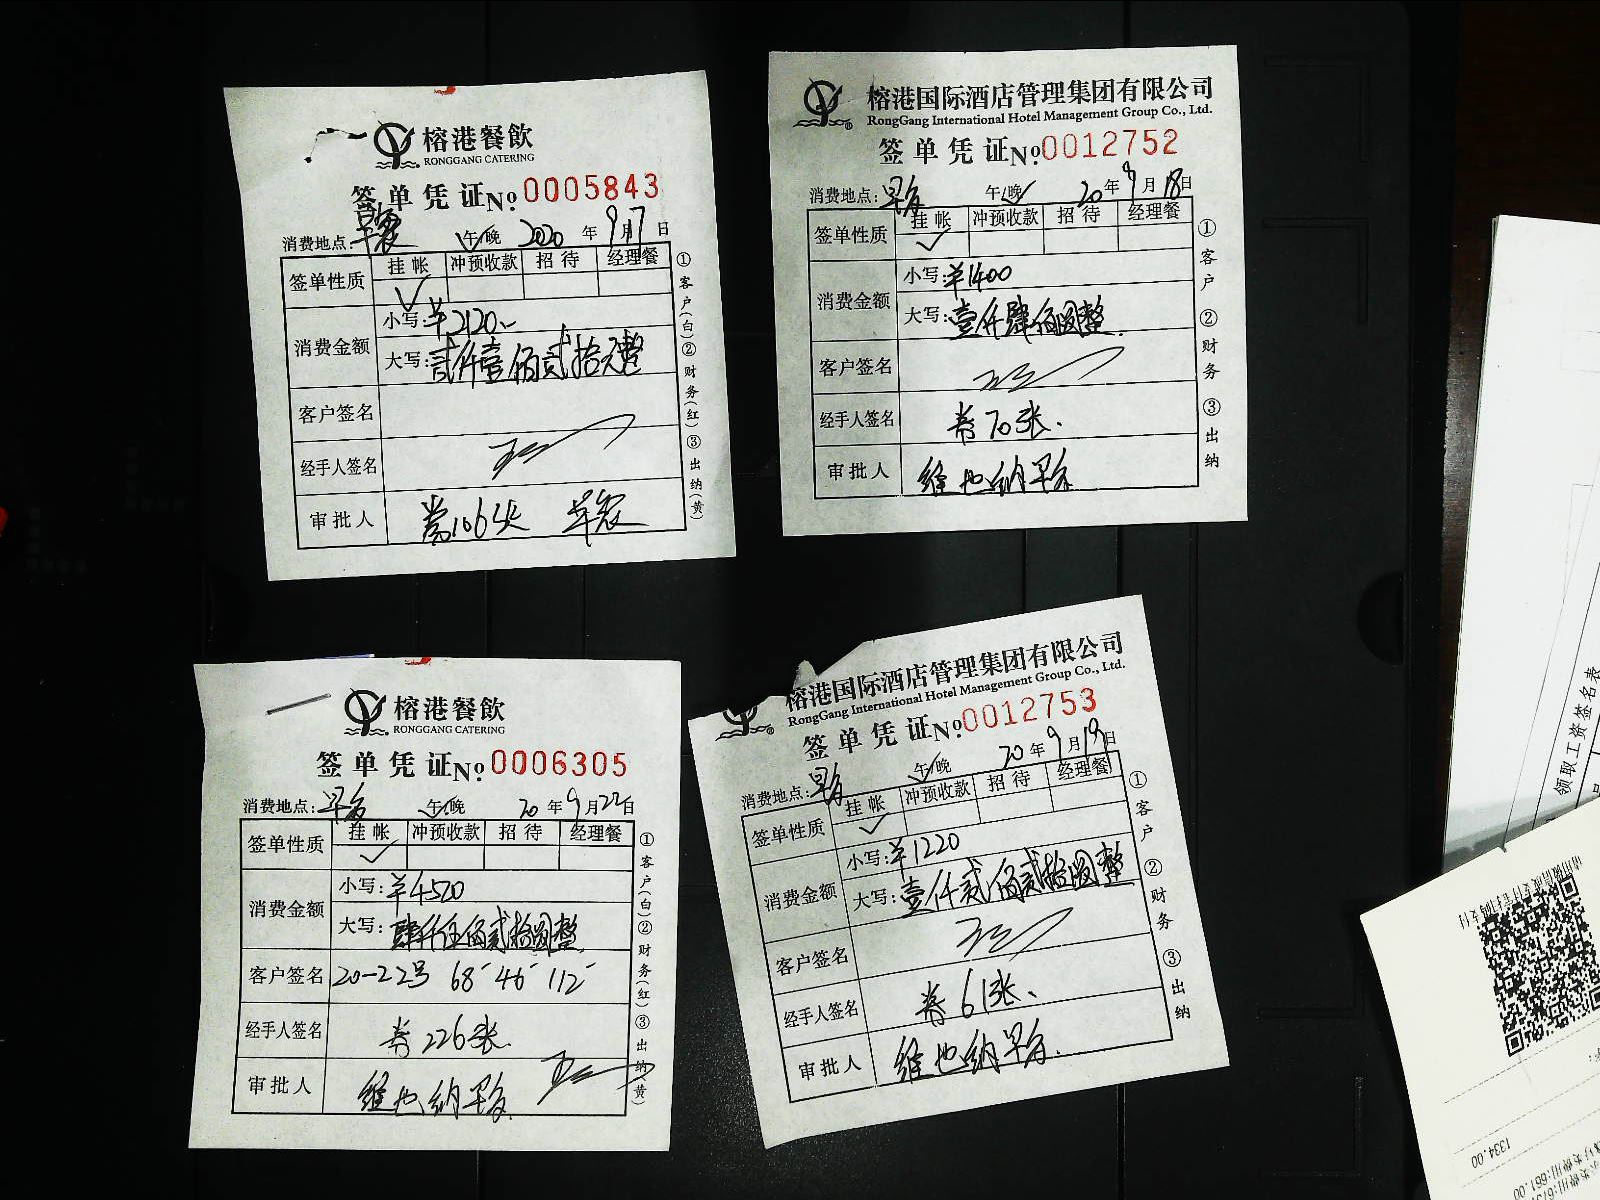 榕港餐飲
RONGGANG CATERING
签单凭证 No. 0005843
消费地点: 早餐 午/晚 2020 年 9月17日
签单性质 挂帐 冲预收款 招待 经理餐
消费金额
小写: ¥2120
大写: 贰仟壹佰贰拾元整
客户签名
经手人签名
审批人 券106张 早餐
①客户(白)②财务(红)③出纳(黄)
榕港国际酒店管理集团有限公司
RongGang International Hotel Management Group Co., Ltd.
签单凭证 No. 0012752
消费地点: 早餐 午/晚 20 年 9月18日
签单性质 挂帐 冲预收款 招待 经理餐
消费金额
小写: ¥1400
大写: 壹仟肆佰圆整
客户签名
经手人签名 券70张.
审批人 维也纳早餐
①客户 ②财务 ③出纳
榕港餐飲
RONGGANG CATERING
签单凭证 No. 0006305
消费地点: 早餐 午/晚 20 年 9月22日
签单性质 挂帐 冲预收款 招待 经理餐
消费金额
小写: ¥4520
大写: 肆仟伍佰贰拾圆整
客户签名 20-22号 68 46 112
经手人签名 券226张.
审批人 维也纳早餐
①客户(白)②财务(红)③出纳(黄)
榕港国际酒店管理集团有限公司
RongGang International Hotel Management Group Co., Ltd.
签单凭证 No. 0012753
消费地点: 早餐 午/晚 20 年 9月19日
签单性质 挂帐 冲预收款 招待 经理餐
消费金额
小写: ¥1220
大写: 壹仟贰佰贰拾圆整
客户签名
经手人签名 券61张、
审批人 维也纳早餐.
①客户 ②财务 ③出纳
领取工资签名表
1334.00